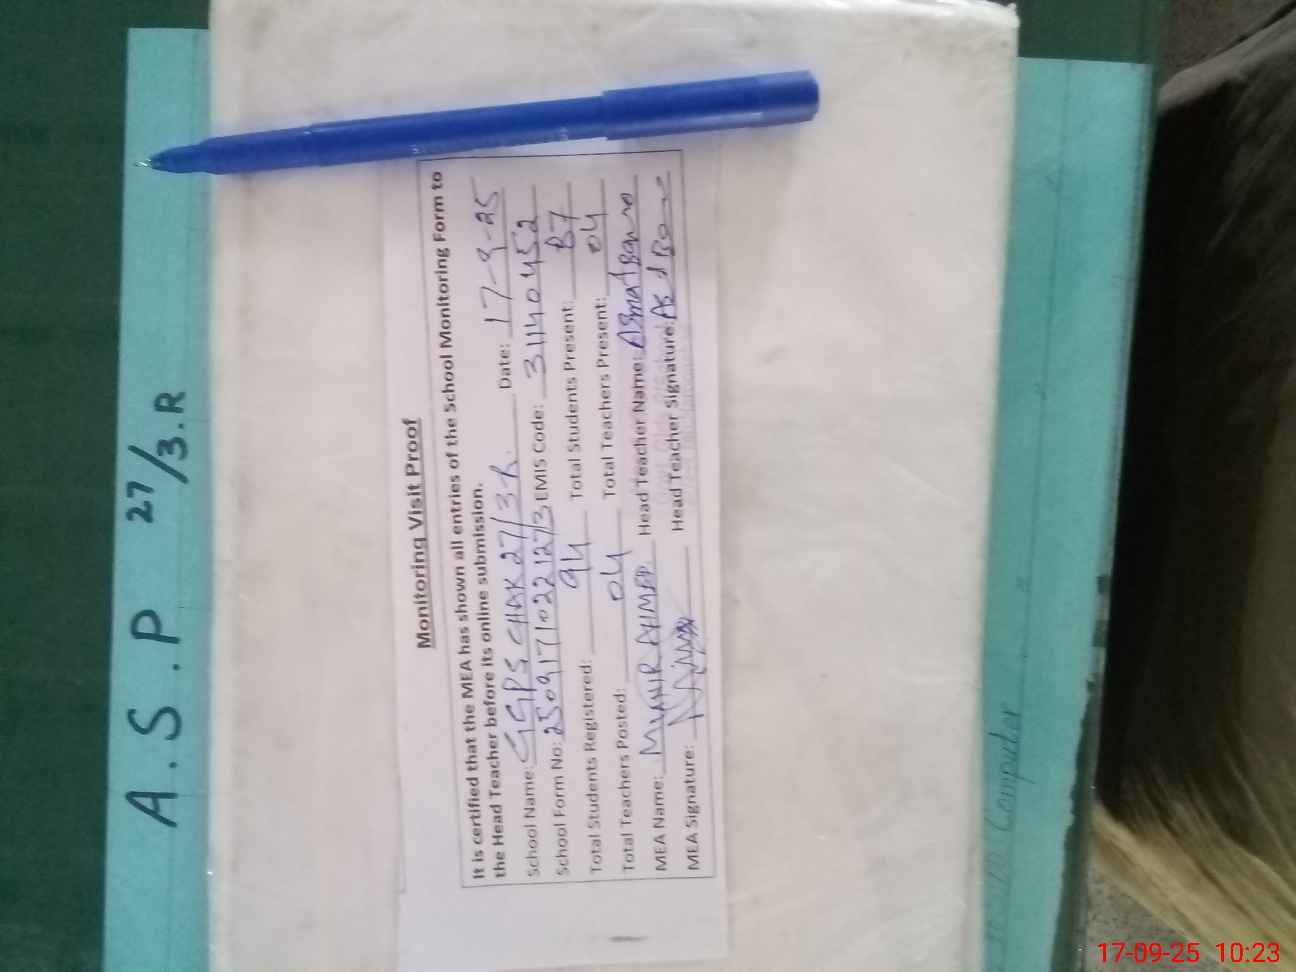 A.S.P 27/3.R
Monitoring Visit Proof
It is certified that the MEA has shown all entries of the School Monitoring Form to
the Head Teacher before its online submission.
School Name: GGPS CHAK 27/3R. Date: 17-9-25
School Form No: 25091710221273 EMIS Code: 31140452
Total Students Registered: 94 Total Students Present: 87
Total Teachers Posted: 04 Total Teachers Present: 04
MEA Name: MUNIR AHMED Head Teacher Name: Asmat Bano
MEA Signature: Head Teacher Signature:
Computer
17-09-25 10:23